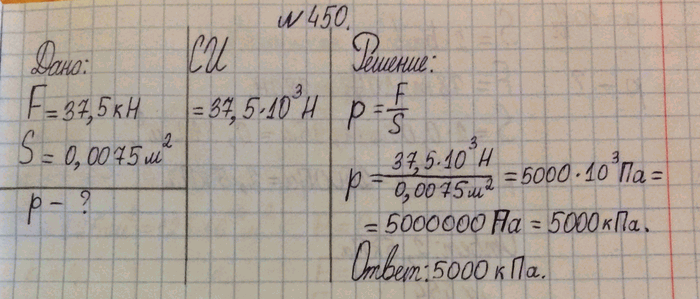 №450.
Дано:
F = 37,5 кН
S = 0,0075 м²
p - ?
СИ
= 37,5·10³ Н
Решение:
p = F/S
p = 37,5·10³ Н / 0,0075 м² = 5000·10³ Па =
= 5000000 Па = 5000 кПа.
Ответ: 5000 кПа.